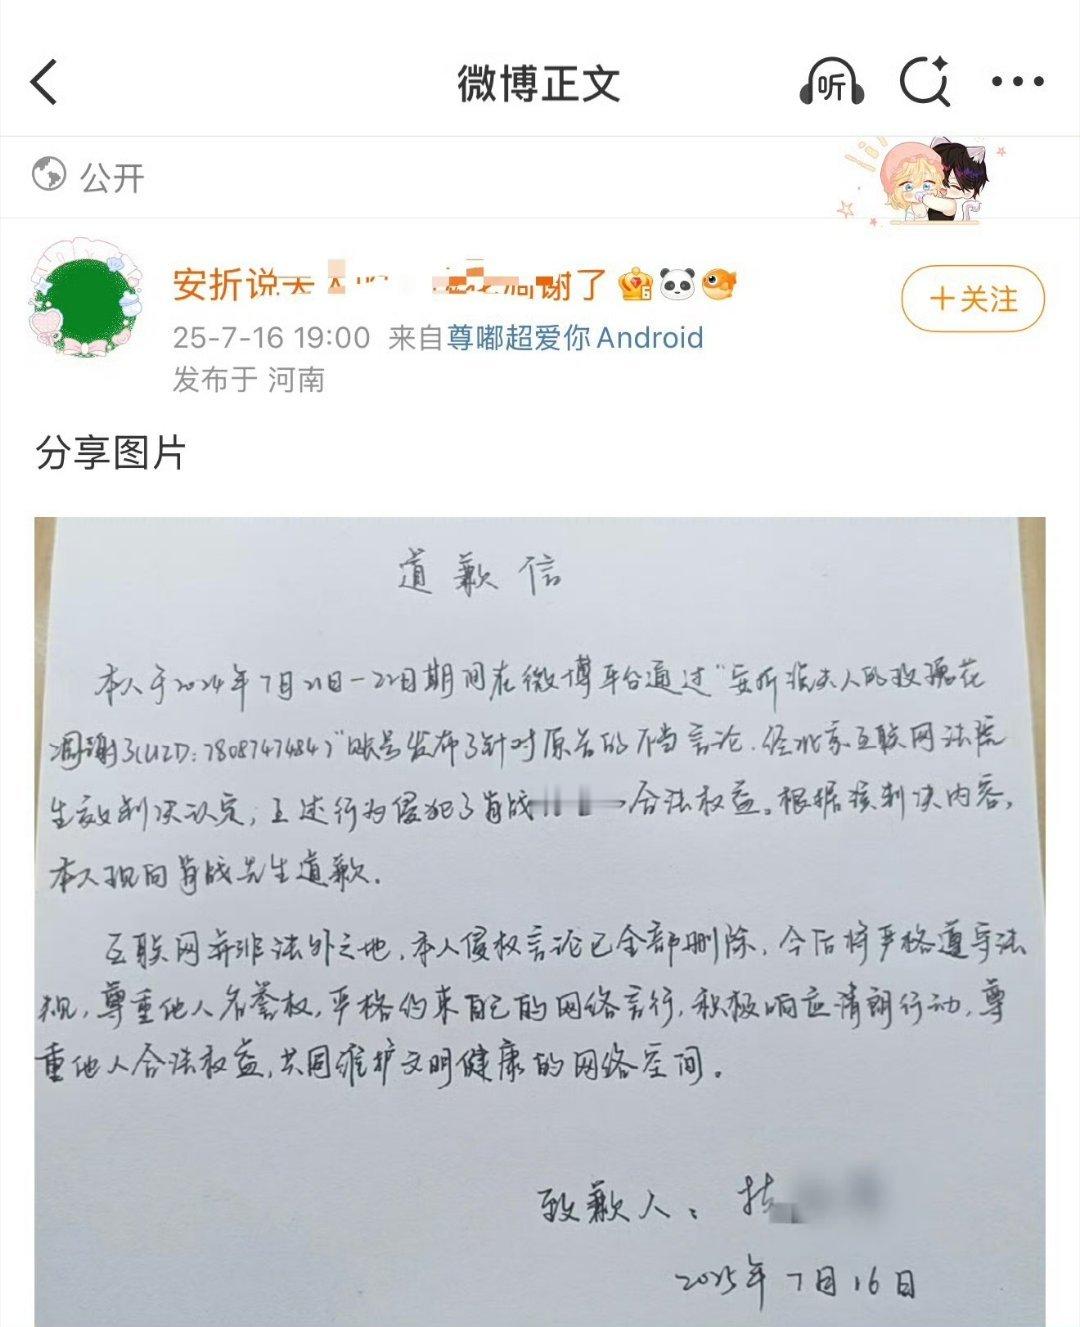 微博正文
听
公开
安折说夫人 谢了
25-7-16 19:00 来自尊嘟超爱你Android
发布于 河南
+关注
分享图片
道歉信
本人于2024年7月21日-22日期间在微博平台通过"安折说夫人的玫瑰花
凋谢了(UID:7808747484)"账号发布了针对原告的不当言论.经北京互联网法院
生效判决认定,上述行为侵犯了肖战 合法权益。根据该判决内容,
本人现向肖战先生道歉.
互联网并非法外之地,本人侵权言论已全部删除,今后将严格遵守法
规,尊重他人名誉权,严格约束自己的网络言行,积极响应清朗行动,尊
重他人合法权益,共同维护文明健康的网络空间。
致歉人:
2025年7月16日